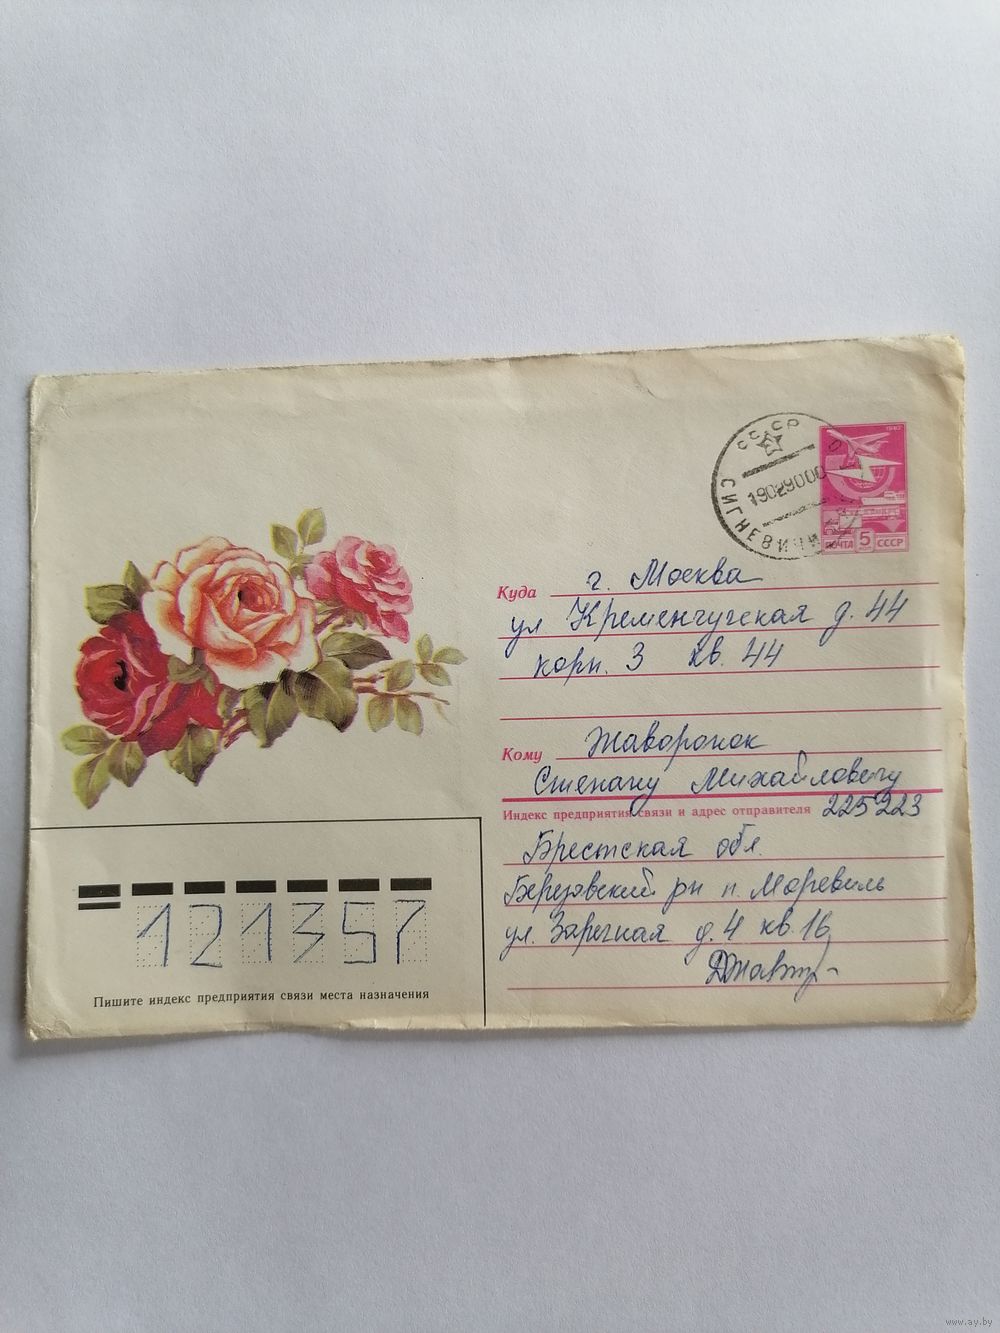 СССР
СИГНЕВИЧИ
19029000
1982
ПОЧТА 5 СССР
Куда г. Москва
ул Кременчугская д. 44
корп. 3 кв. 44
Кому Жаворонок
Степану Михайловичу
Индекс предприятия связи и адрес отправителя 225223
Брестская обл.
Березовский рн п. Моревиль
ул. Заречная д. 4 кв. 16
121357
Пишите индекс предприятия связи места назначения
www.ay.by